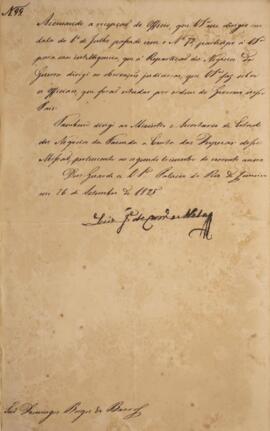 Nº 99
Accusando a recepção do Officio, que VSª me dirigio em
data do 1º de Julho passado com o Nº 12, participo a VSª
para sua intelligencia, que á Repartição dos Negocios da
Guerra dirigi as observações judiciosas, que VSª faz sobre
os Officiaes, que foram por ordem do Governo desse
Paiz.
Tambem dirigi ao Ministro e Secretario de Estado
dos Negocios da Fazenda a Conta das Despezas dessa
Missão, pertencente ao segundo trimestre do corrente anno.
Deos Guarde a VSª Palacio do Rio de Janeiro
em 26 de Setembro de 1825
Luiz Jº de
Snr Domingos Borges de Barros